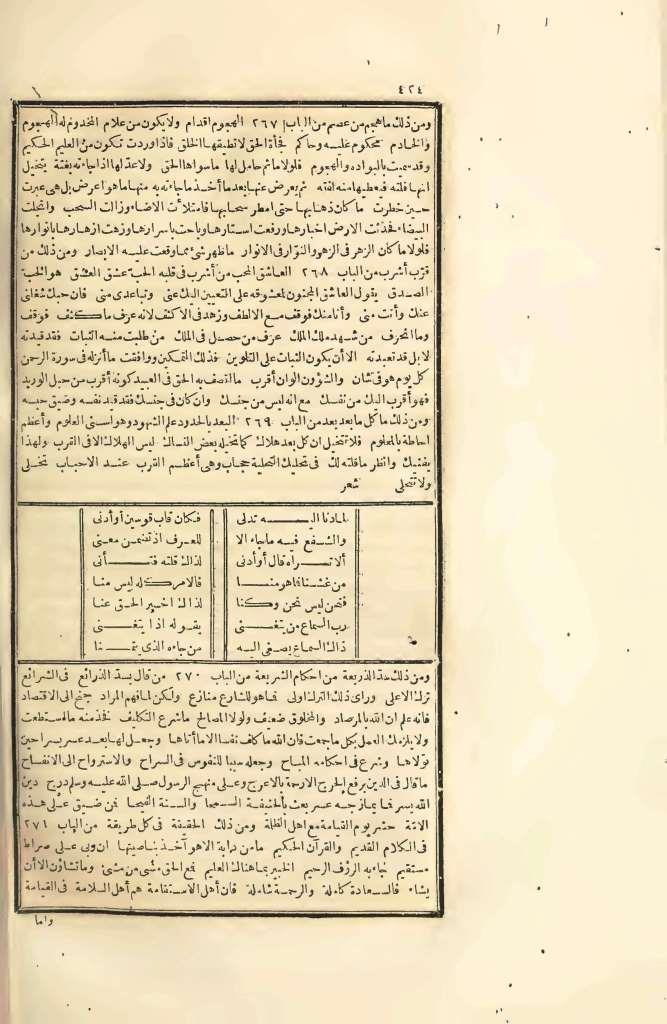 ٤٢٤
ومن ذلك ما هجيم من عصم من الباب ٢٦٧ الهجوم اقدام ولا يكون من علام المخدوم له الهجوم
والخادم محكوم عليه وحاكم فجأة الحق لا تطيقها الخلق فاذا وردت تكون من العليم الحكيم
وقد سميت بالبواده والهجوم فلولا ما ثم حامل لها ما سواها الحق ولا عدلها اذا جاءته بغتة يتخيل
انها فلتة فيعطيها منه لفتة ثم يعرض عنها بعدما أخذ ما جاءته به منها ما هو اعرض بل هي عبرت
حين خطرت ما كان ذهابها حتى امطر سحابها فامتلأت الاضاء وزالت السحب وانجلت
البيضاء فحدثت الارض اخبارها ورفعت استارها وباحت باسرارها وزهت ازهارها بانوارها
فلولا ما كان الزهر في الزهر والنوّار في الانوار ما ظهر شئ مما وقعت عليه الابصار ومن ذلك من
قرّب أشرب من الباب ٢٦٨ العاشق المحب من أشرب في قلبه الحبة عشق العشق هو الحبة
الصدق يقول العاشق المجنون لمعشوقه على التعيين اليك عنى وتباعدى منى فان حبك شغلنى
عنك وأنت منى وأنا منك فوقف مع الالطف وزهد في الاكثف لانه عرف ما كثف فوقف
وما انحرف من شهد ملك الملك عرف من حصل في الملك من طلبت منه الثبات فقد قيدته
لا بل قد تعبدته الا أن يكون الثبات على التلوين فذلك التمكين ووافقت ما أنزله في سورة الرحمن
كل يوم هو في شان والشؤون الوان أقرب ما اتصف به الحق في العبيد كونه أقرب من حبل الوريد
فهو أقرب اليك من نفسك مع انه ليس من جنسك وان كان في جنسك فقد قيد نفسه وضيق حبسه
ومن ذلك ما كل ما بعد بعد من الباب ٢٦٩ البعد بالحدود علم الشهود وهو اسنى العلوم وأعظم
احاطة بالمعلوم فلا تتخيل ان كل بعد هلاك كما تخيله بعض النساك ليس الهلاك الا في القرب ولهذا
يفنيك وانظر ما قلته لك في تحليك التحلية حجاب وهى أعظم القرب عند الاحباب تخلى
ولا تتحلى شعر
لما دنا اليه تدلى فكان قاب قوسين أو أدنى
والشفع فيه ما جاء الا للعرف اذ تضمن معنى
ألا تراه قال أو أدنى لذاك قلته فتأنى
من غشنا فما هو منا فالامر كله ليس منا
فنحن ليس نحن وكنا لذاك اخبر الحق عنا
رب السماع من يتغنى بقوله اذا يتغنى
ذاك السماع يصغى اليه من جاءه الذى يتمنا
ومن ذلك سد الذريعة من احكام الشريعة من الباب ٢٧٠ من قال بسد الذرائع في الشرائع
ترك الاعلى وراى ذلك الترك اولى فما هو للشارع منازع ولكن لما فهم المراد جنح الى الاقتصاد
فانه علم ان الله بالمرصاد والمخلوق ضعيف ولولا المصالح ما شرع التكليف فخذ منه ما استطعت
ولا يلزمك العمل بكل ما جمعت فان الله ما كلف نفسا الا ما أتاها وجعل لها بعد عسر يسرا حين
تولاها وشرع في احكامه المباح وجعله سببا للنفوس في السراح والاسترواح الى الانفساح
ما قال في الدين برفع الحرج الا رحمة بالاعرج وعلى منهج الرسول صلى الله عليه وسلم درج دين
الله يسر فما يمازجه عسر بعث بالحنيفة السمحا والسنة الفيحا فمن ضيق على هذه
الامة حشر يوم القيامة مع اهل الظلمة ومن ذلك الحقيقة في كل طريقة من الباب ٢٧١
في الكلام القديم والقرآن الحكيم ما من دابة الا هو آخذ بناصيتها ان ربى على صراط
مستقيم فجاء به الرؤف الرحيم الخبير بما هنالك العليم فمع الحق مشى من مشى وما تشاؤن الا أن
يشاء فالسعادة كاملة والرحمة شاملة فان أهل الاستقامة هم أهل السلامة في القيامة
واما